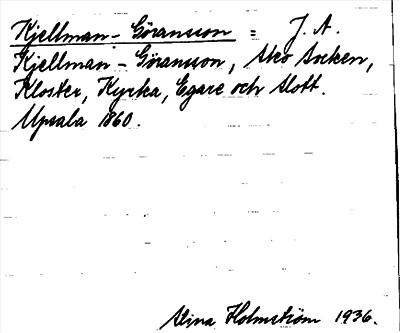 Kjellman-Göransson = J. A.
Kjellman-Göransson, Sko Socken,
Kloster, Kyrka, Egare och Slott.
Upsala 1860.
Stina Holmström 1936.